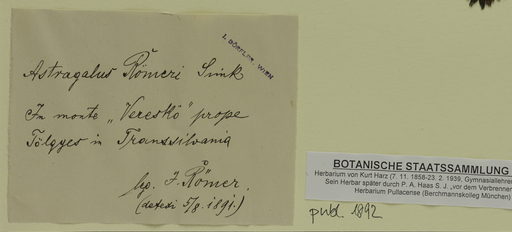 I. DÖRFLER, WIEN
Astragalus Römeri Simk
In monte „Vereskö" prope
Tölgyes in Transsilvania
leg. J. Römer.
(detexi 5/8. 1891.)
BOTANISCHE STAATSSAMMLUNG
Herbarium von Kurt Harz (7. 11. 1858-23. 2. 1939, Gymnasiallehrer
Sein Herbar später durch P. A. Haas S. J. „vor dem Verbrennen
Herbarium Pullacense (Berchmannskolleg München)
publ. 1892